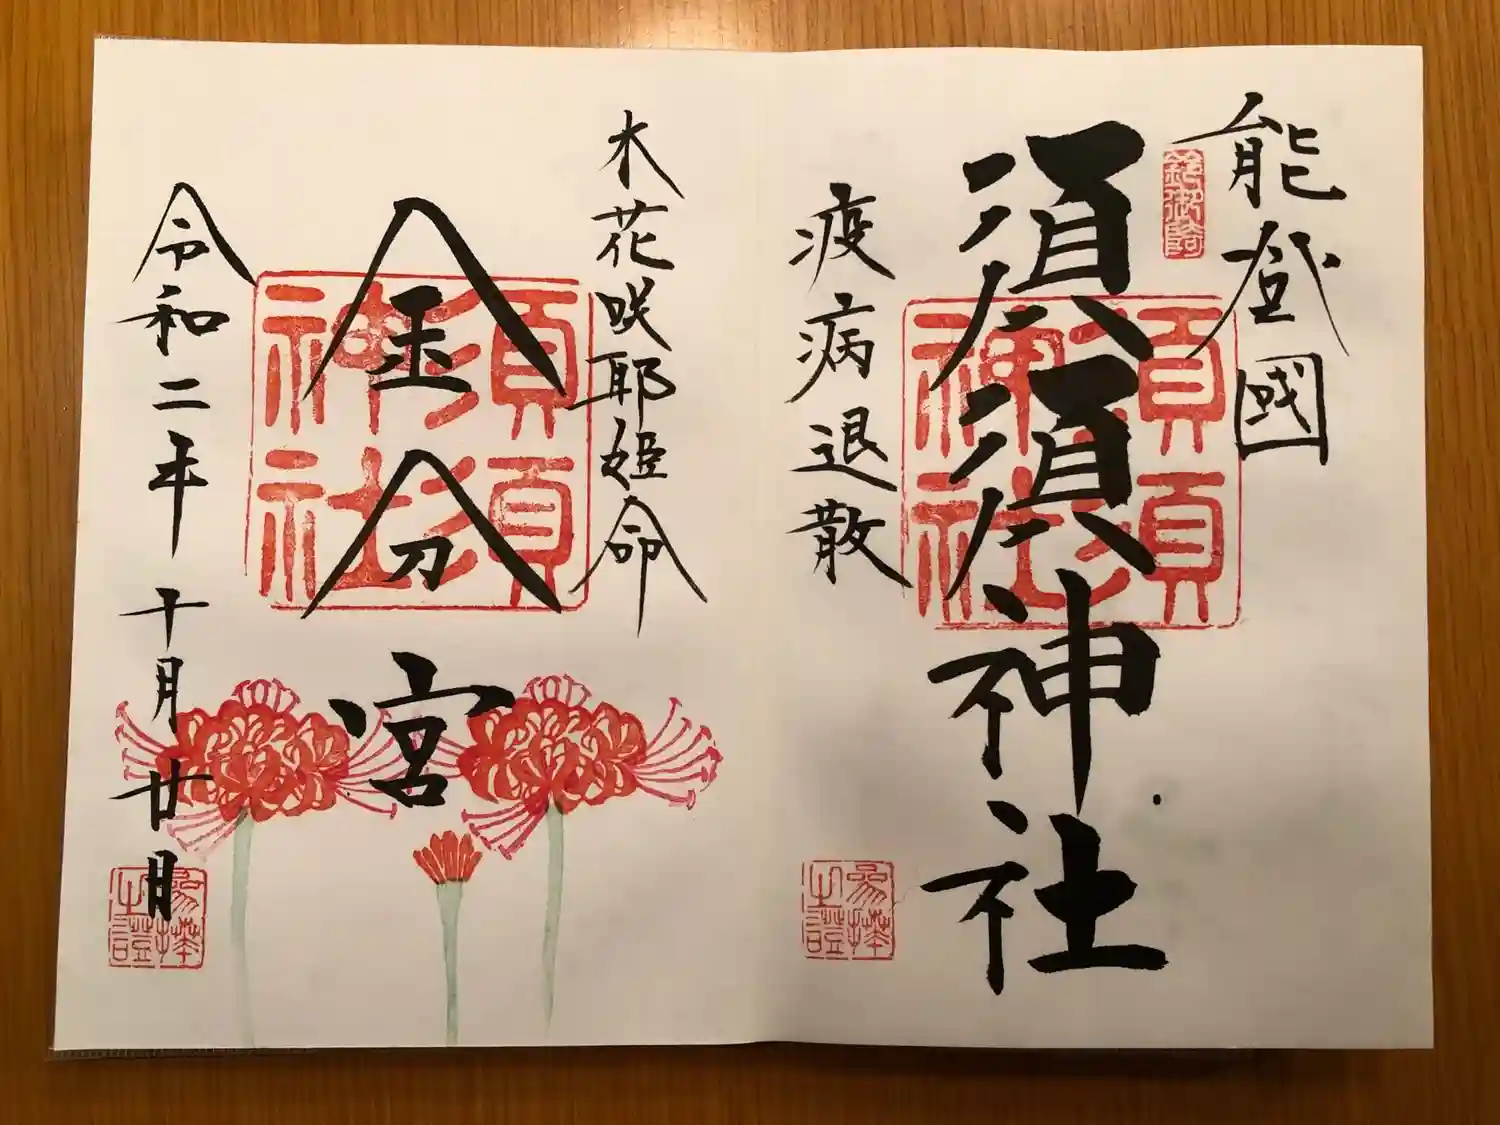 能登國
須須神社
疫病退散
須須
神社
木花咲耶姫命
金分宮
令和二年十月廿日
須須
神社